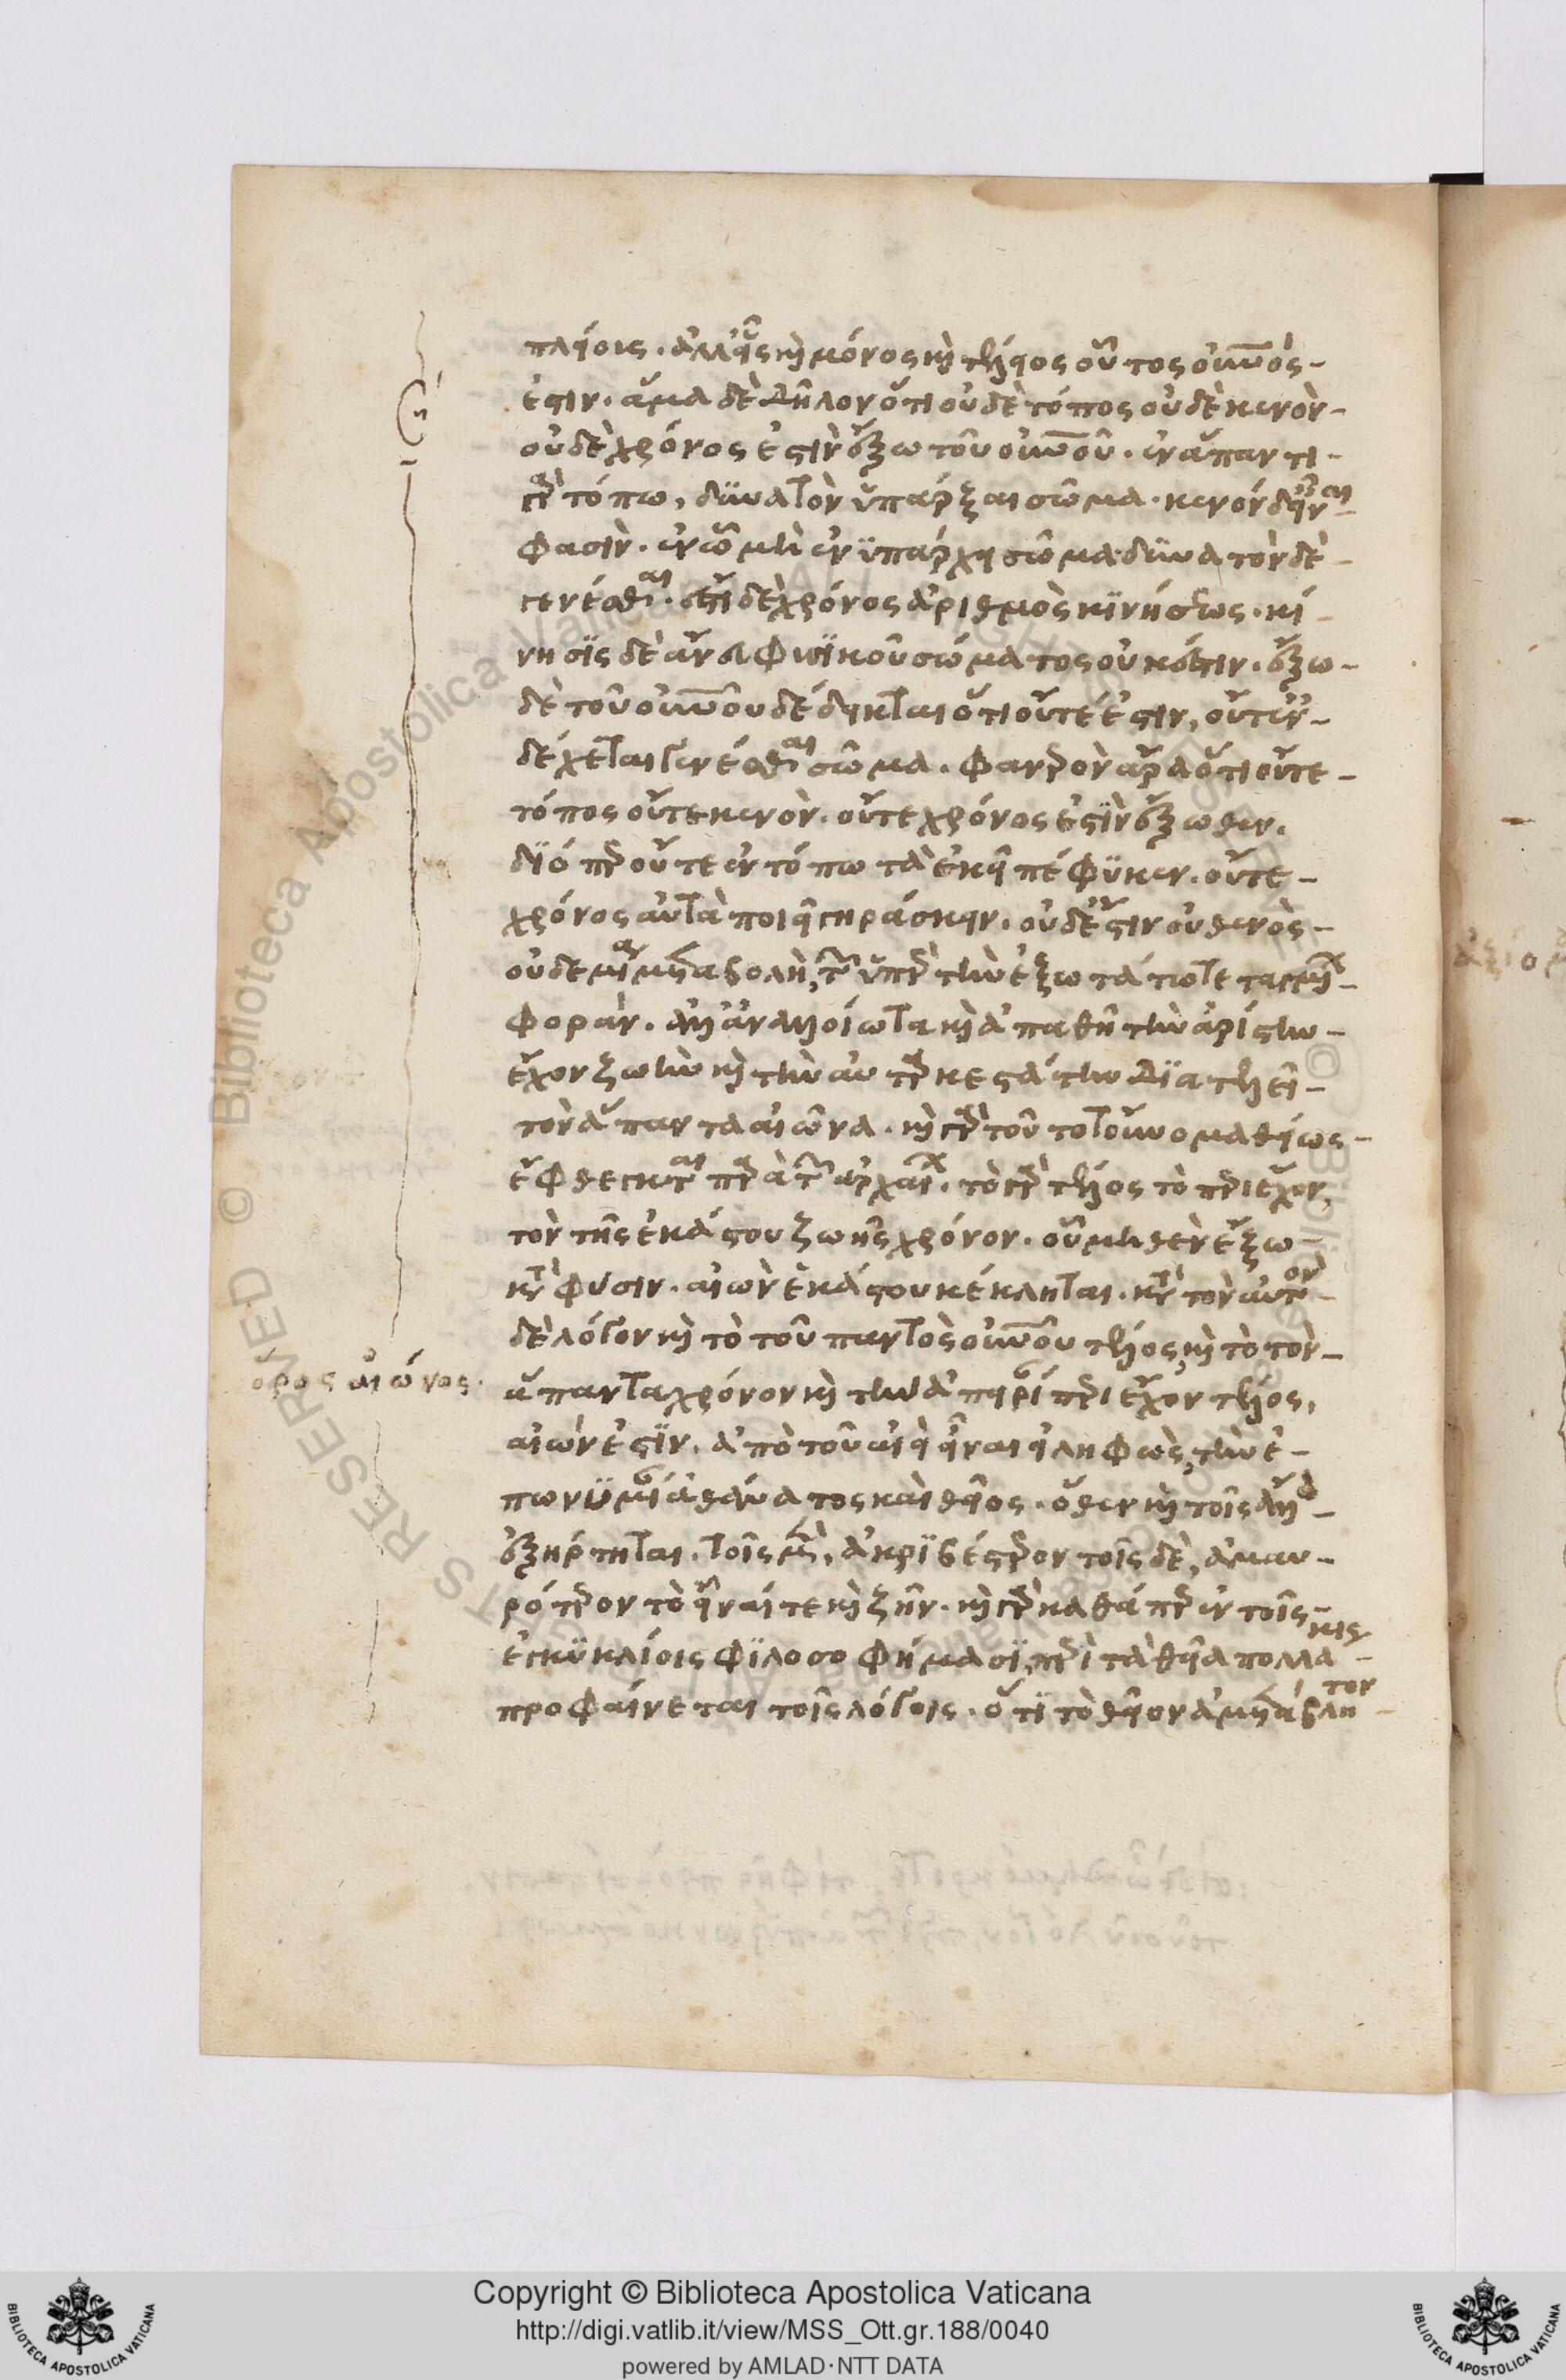 πλείους. ἀλλ' εἷς καὶ μόνος καὶ τέλειος οὗτος οὐνός
ἐστιν. ἅμα δὲ δῆλον ὅτι οὐδὲ τόπος οὐδὲ κενὸν
οὐδὲ χρόνος ἐστὶν ἔξω τοῦ οὐνοῦ. ἐν ἅπαντι
γὰρ τόπω, δυνατὸν ὑπάρξαι σῶμα. κενὸν δ' εἶναι
φασὶν. ἐν ᾧ μὴ ἐνϋπάρχει σῶμα. δυνατὸν δὲ
γενέσθαι. ἔτι δὲ χρόνος ἀριθμὸς κϊνήσεως. κί
νησϊς δὲ ἄνευ φυσϊκοῦ σώματος οὐκ ἔστιν. ἔξω
δὲ τοῦ οὐνοῦ δέδεικται ὅτι οὔτέ ἐστιν, οὔτ' ἐν
δέχεται γενέσθαι σῶμα. φανερὸν ἄρα ὅτι οὔτε
τόπος οὔτε κενὸν. οὔτε χρόνος ἐστὶν ἔξωθεν.
δϊόπερ οὔτε ἐν τόπω τὰ ἐκεῖ πέφϋκεν. οὔτε
χρόνος αὐτὰ ποιεῖ γηράσκειν. οὐδέ ἐστιν οὐθενὸς
οὐδεμία μεταβολὴ, τῶν ὑπὲρ τὴν ἐξωτάτω τεταγμένων
φορὰν. ἀλλ' ἀναλλοίωτα καὶ ἀπαθῆ τὴν ἀρίστην
ἔχον ζωὴν καὶ τὴν αὐταρκεστάτην δϊατελεῖ
τὸν ἅπαντα αἰῶνα. καὶ γὰρ τοῦτο τοὔνομα θείως
ἔφθεγκται παρὰ τῶν ἀρχαίων. τὸ γὰρ τέλος τὸ περιέχον,
τὸν τῆς ἑκάστου ζωῆς χρόνον. οὗ μηθὲν ἔξω
κατὰ φύσιν. αἰὼν ἑκάστου κέκληται. κατὰ τὸν αὐτὸν
δὲ λόγον καὶ τὸ τοῦ παντὸς οὐνοῦ τέλος, καὶ τὸ τὸν
ἅπαντα χρόνον καὶ τὴν ἀπειρίαν περιέχον τέλος,
αἰὼν ἐστϊν. ἀπὸ τοῦ αἰεὶ εἶναι εἰληφὼς, τὴν ἐ
πωνυμίαν ἀθάνατος καὶ θεῖος. ὅθεν καὶ τοῖς ἄλλοις
ἐξήρτηται. τοῖς μὲν, ἀκρϊβέστερον τοῖς δὲ, ἀμαυ
ρότερον τὸ εἶναί τε καὶ ζῆν. καὶ γὰρ καθάπερ ἐν τοῖς
ἐγκϋκλίοις φϊλοσοφήμασϊ, περὶ τὰ θεῖα πολλάκις
προφαίνεται τοῖς λόγοις. ὅτϊ τὸ θεῖον ἀμετάβλητον
ὅρος αἰῶνος.
Copyright © Biblioteca Apostolica Vaticana
http://digi.vatlib.it/view/MSS_Ott.gr.188/0040
powered by AMLAD·NTT DATA
BIBLIOTECA APOSTOLICA VATICANA
BIBLIOTECA APOSTOLICA VATICANA